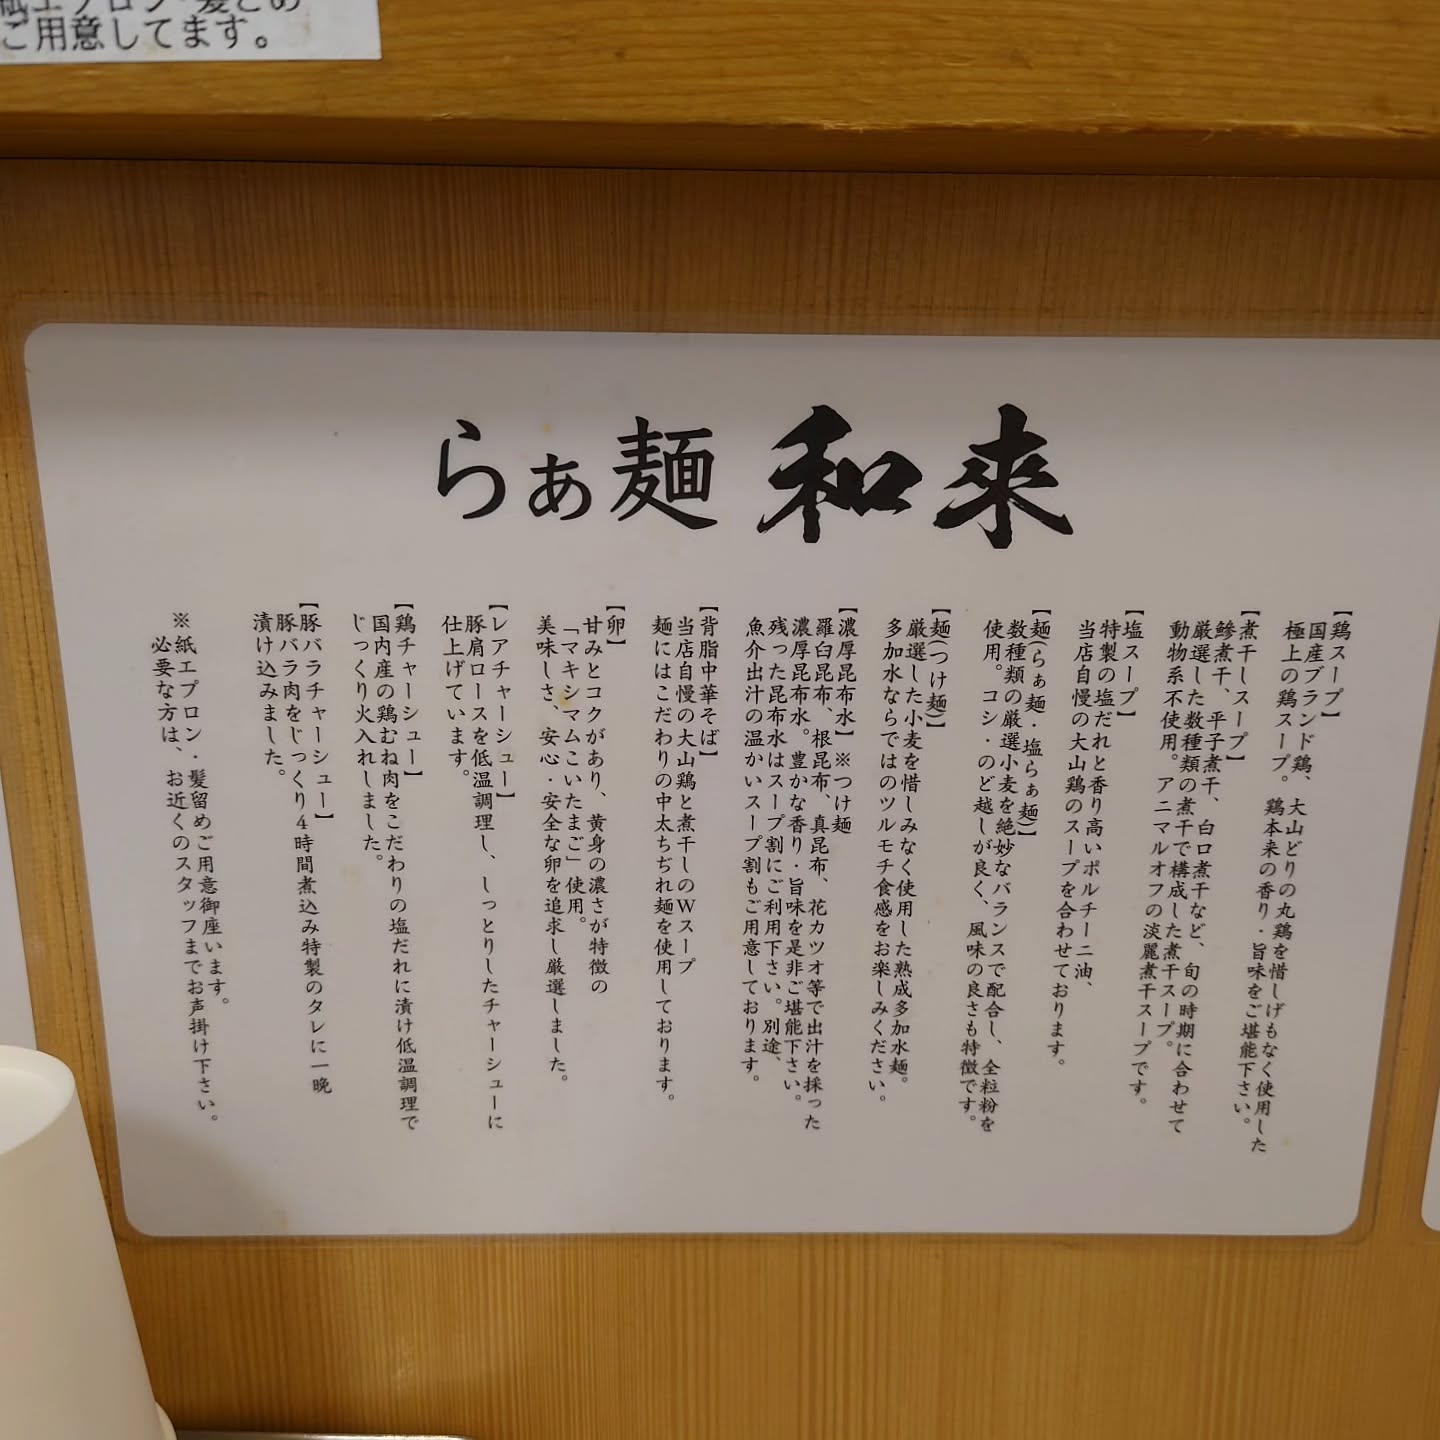 紙エプロン・髪どめ
ご用意してます。
らぁ麺 和来
【鶏スープ】
国産ブランド鶏、大山どりの丸鶏を惜しげもなく使用した
極上の鶏スープ。鶏本来の香り・旨味をご堪能下さい。
【煮干しスープ】
鯵煮干、平子煮干、白口煮干など、旬の時期に合わせて
厳選した数種類の煮干で構成した煮干スープ。
動物系不使用。アニマルオフの淡麗煮干スープです。
【塩スープ】
特製の塩だれと香り高いポルチーニ油、
当店自慢の大山鶏のスープを合わせております。
【麺(らぁ麺・塩らぁ麺)】
数種類の厳選小麦を絶妙なバランスで配合し、全粒粉を
使用。コシ・のど越しが良く、風味の良さも特徴です。
【麺(つけ麺)】
厳選した小麦を惜しみなく使用した熟成多加水麺。
多加水ならではのツルモチ食感をお楽しみください。
【濃厚昆布水】※つけ麺
羅臼昆布、根昆布、真昆布、花カツオ等で出汁を採った
濃厚昆布水。豊かな香り・旨味を是非ご堪能下さい。
残った昆布水はスープ割にご利用下さい。別途、
魚介出汁の温かいスープ割もご用意しております。
【背脂中華そば】
当店自慢の大山鶏と煮干しのWスープ
麺にはこだわりの中太ちぢれ麺を使用しております。
【卵】
甘みとコクがあり、黄身の濃さが特徴の
「マキシマムこいたまご」使用。
美味しさ、安心・安全な卵を追求し厳選しました。
【レアチャーシュー】
豚肩ロースを低温調理し、しっとりしたチャーシューに
仕上げています。
【鶏チャーシュー】
国内産の鶏むね肉をこだわりの塩だれに漬け低温調理で
じっくり火入れしました。
【豚バラチャーシュー】
豚バラ肉をじっくり4時間煮込み特製のタレに一晩
漬け込みました。
※紙エプロン・髪留めご用意御座います。
必要な方は、お近くのスタッフまでお声掛け下さい。